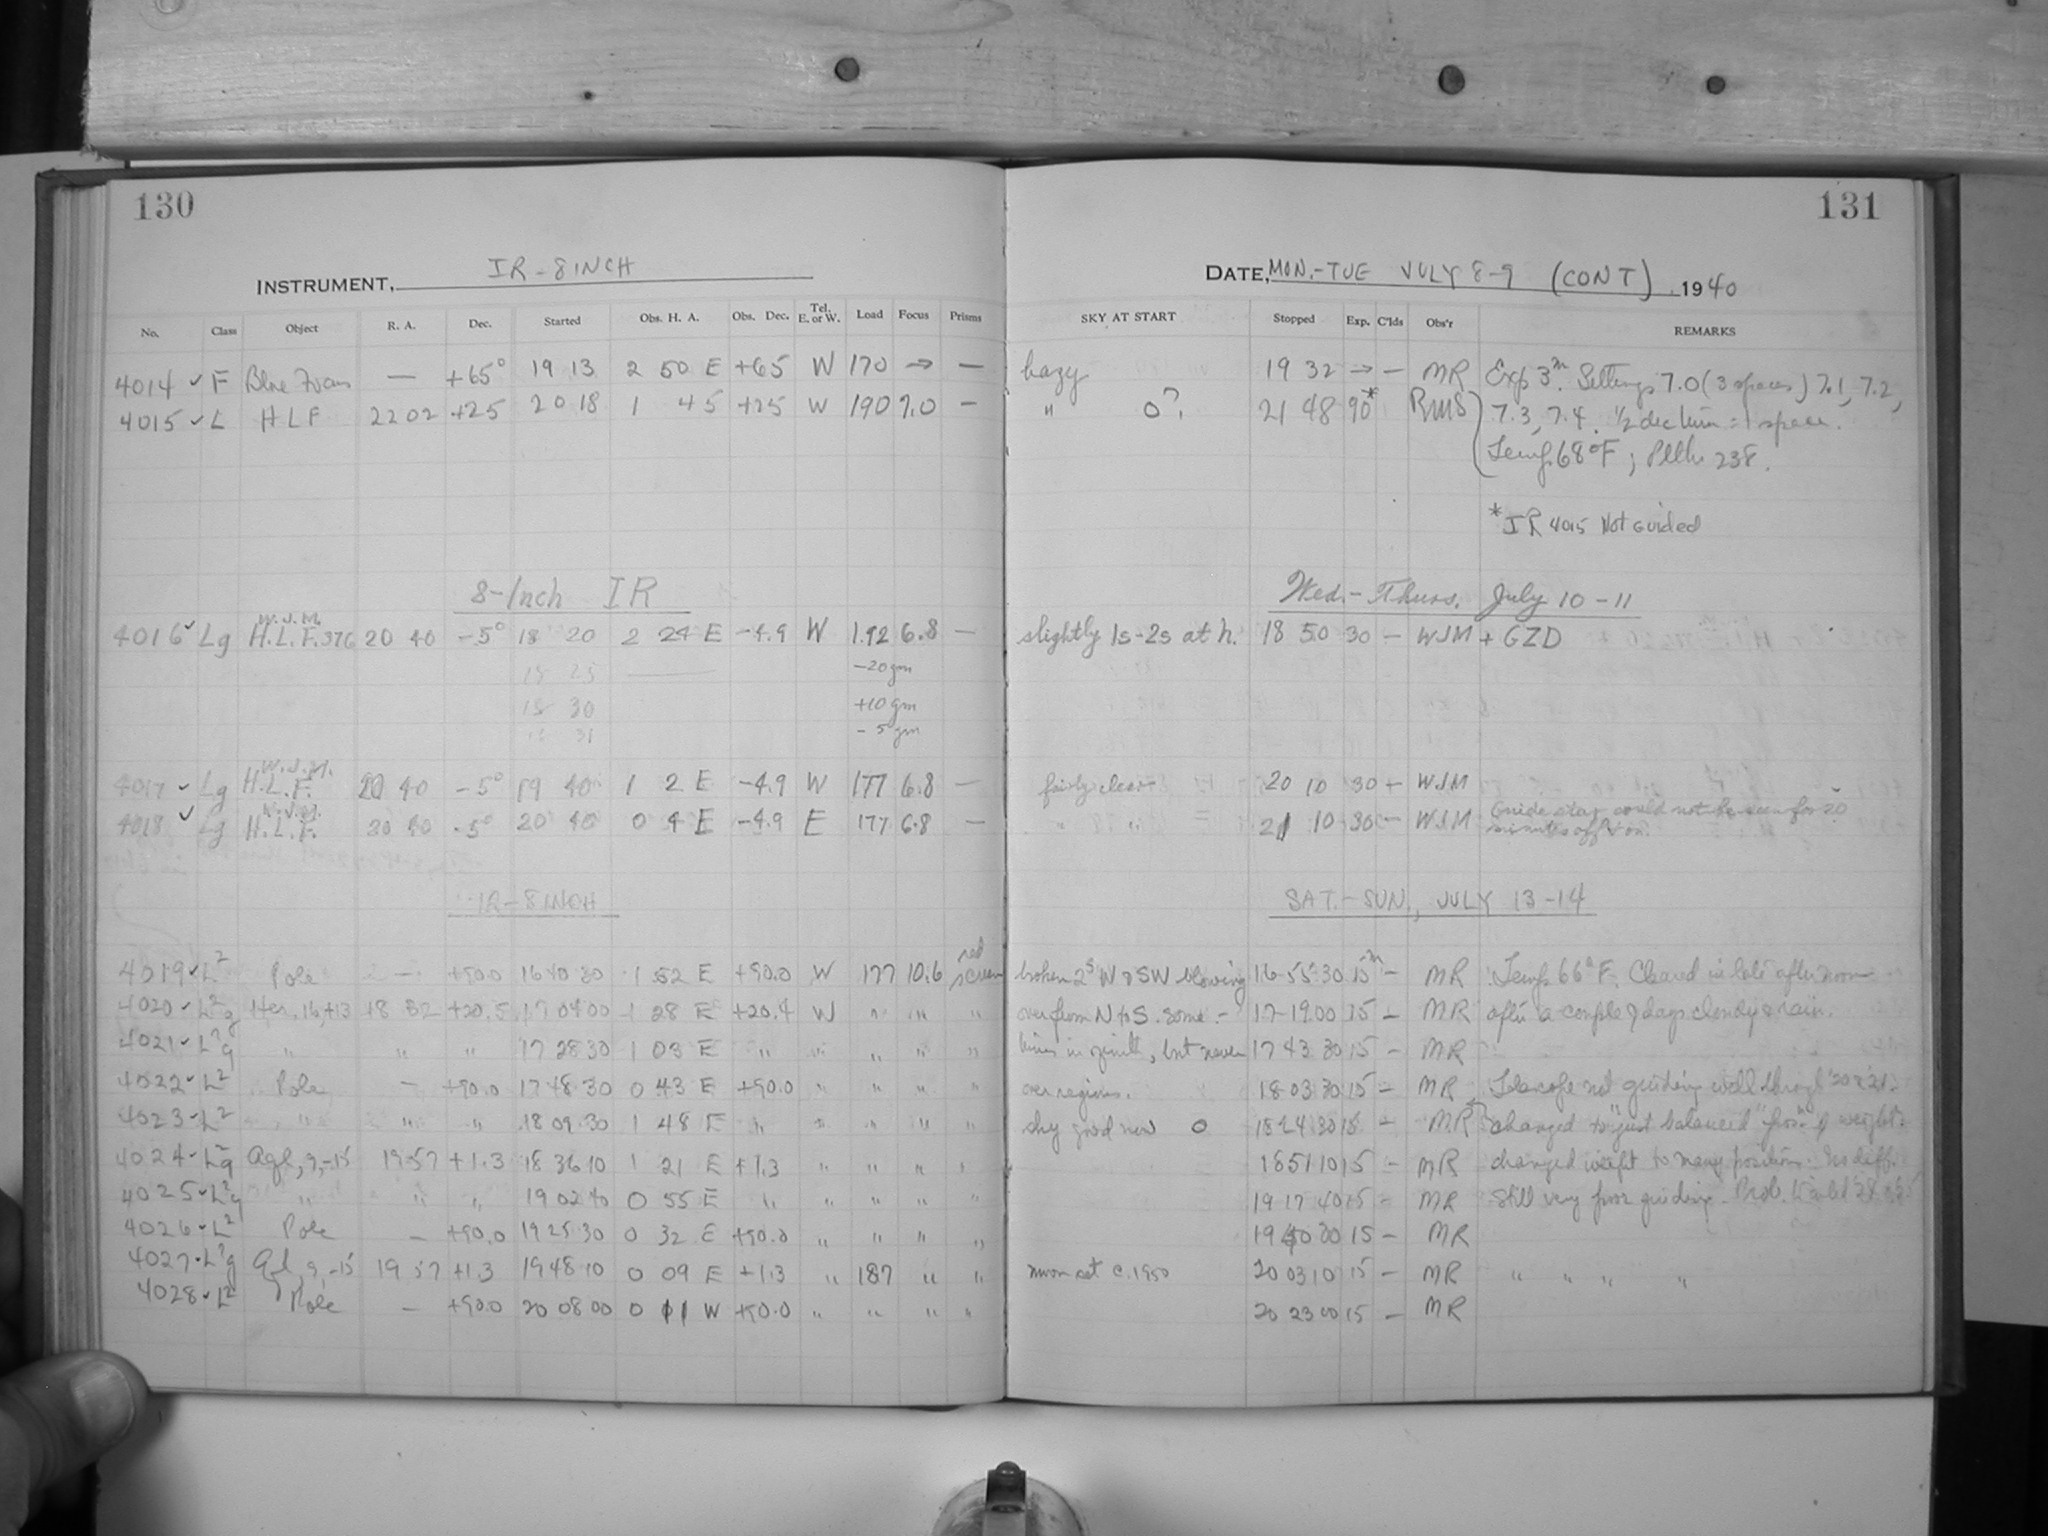 130
131
INSTRUMENT, IR - 8 INCH
DATE, MON.-TUE JULY 8-9 (CONT) 1940
No. Class Object R. A. Dec. Started Obs. H. A. Obs. Dec. Tel. E. or W. Load Focus Prisms SKY AT START Stopped Exp. C'lds Obs'r REMARKS
4014 ✓ F Blue — +65° 19 13 2 50 E +65 W 170 → — hazy 19 32 → — MR Exp 3m. Settings 7.0 (3 spaces) 7.1, 7.2,
4015 ✓ L HLF 22 02 +25 20 18 1 45 +25 W 190 7.0 — " 0?. 21 48 90* RMS 7.3, 7.4. ½ dec turn = 1 space.
Temp 68°F; 238.
* IR 4015 Not Guided
8-Inch IR
Wed.- Thurs. July 10-11
W.J.M.
4016 ✓ Lg H.L.F. 376 20 40 -5° 18 20 2 24 E -4.9 W 1.92 6.8 — slightly 1s-2s at h. 18 50 30 — WJM + GZD
18 25 —— -20gm
18 30 +10gm
18 31 -5gm
W.J.M.
4017 ✓ Lg H.L.F. 20 40 -5° 19 40 1 2 E -4.9 W 177 6.8 — fairly clear 20 10 30 — WJM
W.J.M.
4018 ✓ Lg H.L.F. 20 40 -5° 20 40 0 4 E -4.9 E 177 6.8 — " " 21 10 30 — WJM Guide star could not be seen for 20
minutes off & on.
IR - 8 INCH
SAT.-SUN., JULY 13-14
red
4019 ✓ L² Pole — +90.0 16 40 30 1 52 E +90.0 W 177 10.6 screen broken 2s W & SW blowing 16-55-30 15m — MR Temp 66°F. Cleared in late afternoon
4020 ✓ L²g Her, 16, +13 18 52 +20.5 17 04 00 1 28 E +20.4 W " " " over from N to S. some - 17-19 00 15 — MR after a couple of days cloudy & rain.
4021 ✓ L²g " " " 17 28 30 1 03 E " " " " " times in zenith, but never 17 43 30 15 — MR
4022 ✓ L² Pole — +90.0 17 48 30 0 43 E +90.0 " " " " over regions. 18-03 30 15 — MR Telescope not guiding well through '20 & '21.
4023 ✓ L² " " " 18 09 30 1 48 E " " " " " sky good now 0 18 24 30 15 — MR changed to "just balanced" of weight.
4024 ✓ L²g Aql, 9, -15 19 57 +1.3 18 36 10 1 21 E +1.3 " " " " 18 51 10 15 — MR changed weight to many positions. No diff.
4025 ✓ L²g " " " 19 02 40 0 55 E " " " " " 19 17 40 15 — MR Still very poor guiding.
4026 ✓ L² Pole — +90.0 19 25 30 0 32 E +90.0 " " " " 19 40 30 15 — MR
4027 ✓ L²g Aql, 9, -15 19 57 +1.3 19 48 10 0 09 E +1.3 " 187 " " moon set c. 1950 20 03 10 15 — MR " " " "
4028 ✓ L² Pole — +90.0 20 08 00 0 11 W +90.0 " " " " 20 23 00 15 — MR